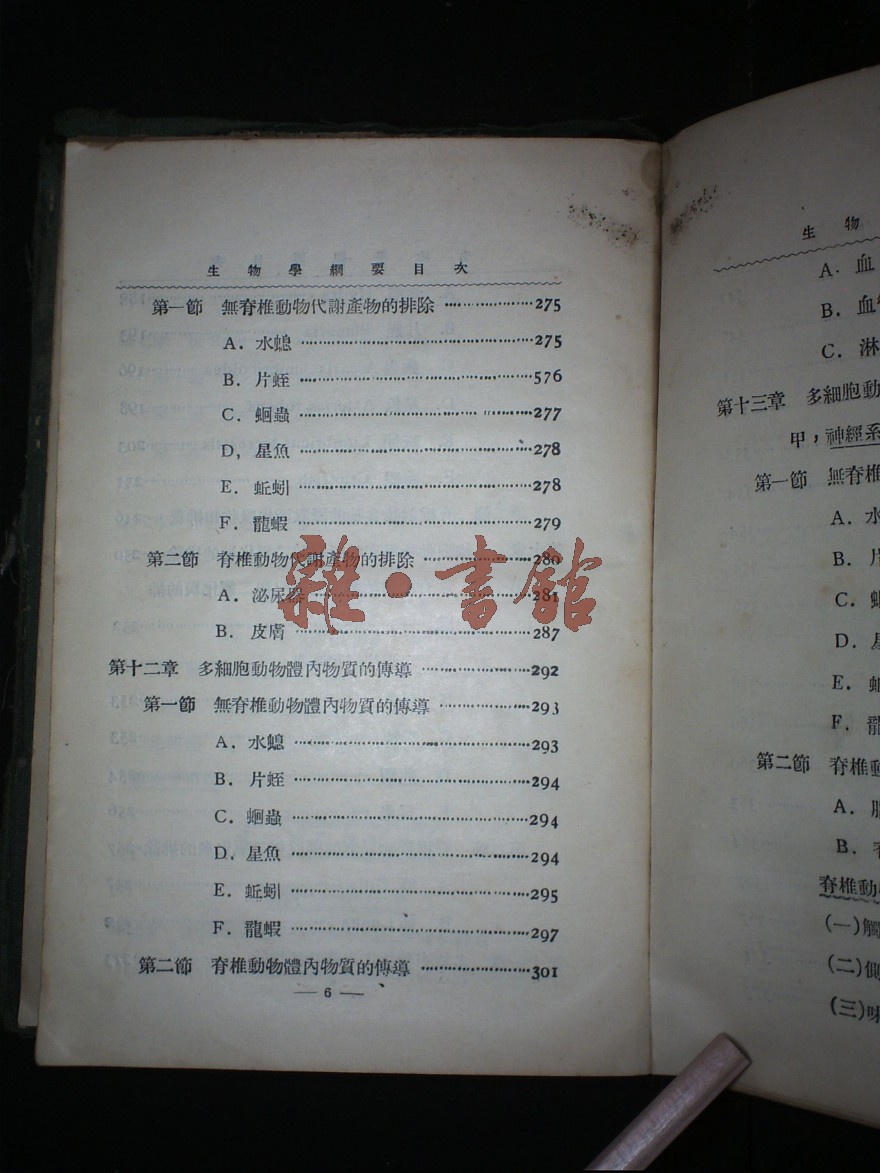 生物學綱要目次
第一節 無脊椎動物代謝產物的排除 ··················275
A．水螅 ··················275
B．片蛭 ··················576
C．蛔蟲 ··················277
D，星魚 ··················278
E．蚯蚓 ··················278
F．龍蝦 ··················279
第二節 脊椎動物代謝產物的排除 ··················280
A．泌尿器 ··················281
B．皮膚 ··················287
第十二章 多細胞動物體內物質的傳導 ··················292
第一節 無脊椎動物體內物質的傳導 ··················293
A．水螅 ··················293
B．片蛭 ··················294
C．蛔蟲 ··················294
D．星魚 ··················294
E．蚯蚓 ··················295
F．龍蝦 ··················297
第二節 脊椎動物體內物質的傳導 ··················301
— 6 —
雜·書館
生物
A．血
B．血
C．淋
第十三章 多細胞動
甲，神經系
第一節 無脊椎
A．水
B．片
C．
D．
E．
F．龍
第二節 脊椎動
A．
B．
脊椎動
(一)觸
(二)側
(三)味